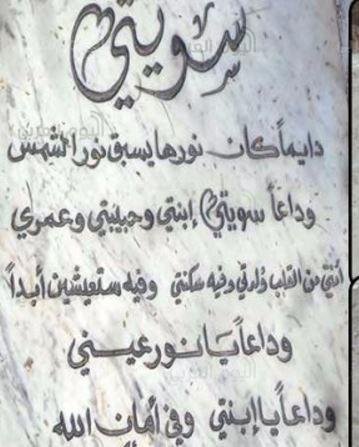 سويتي
دايماً كان نورها يسبق نور الشمس
وداعاً سويتي إبنتي وحبيبتي وعمري
أنتي من القلب ولدتي وفيه سكنتي وفيه ستعيشين أبداً
وداعاً يا نور عيني
وداعاً يا إبنتي وفي أمان الله